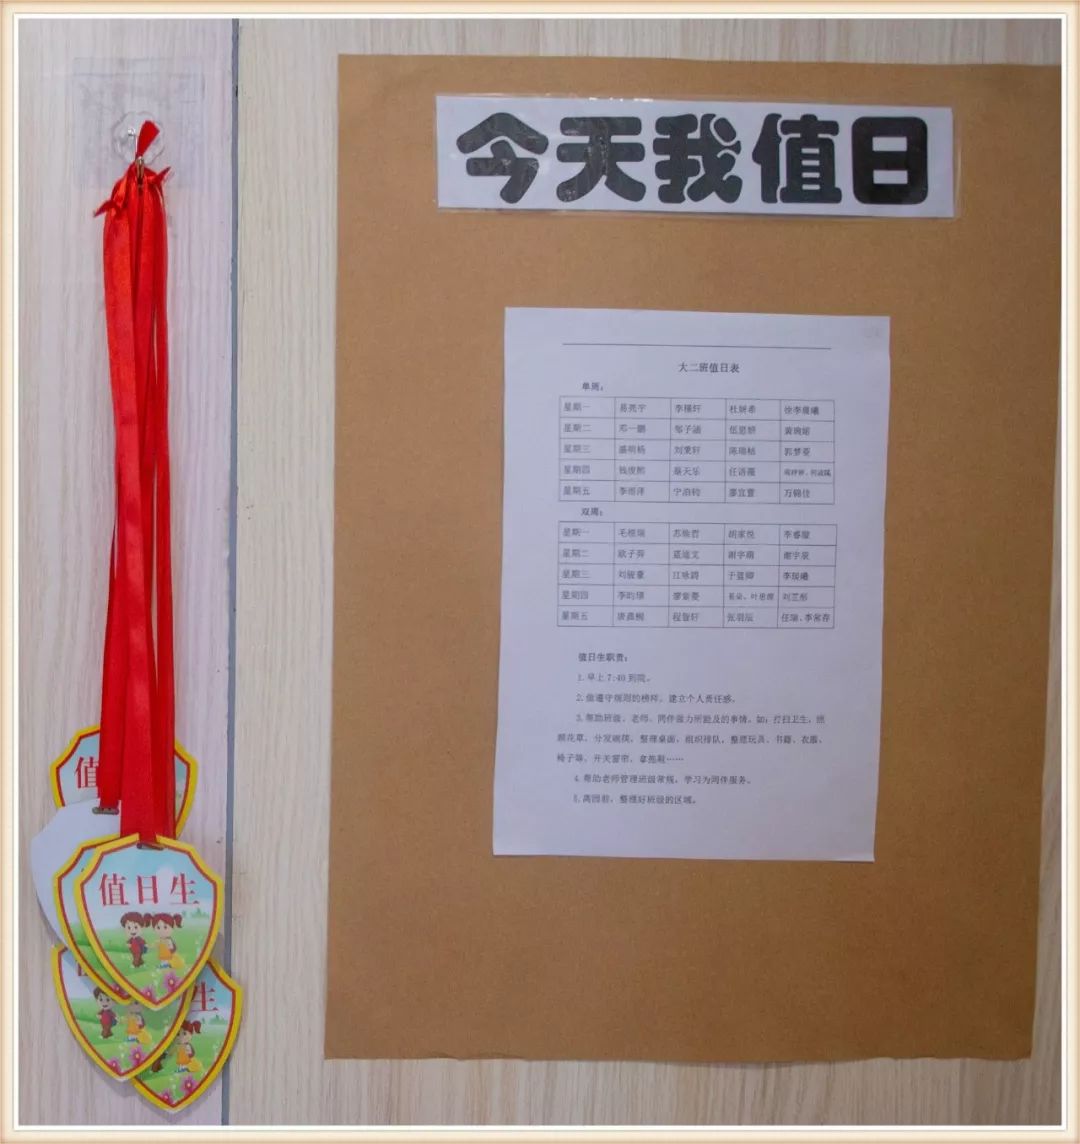 今天我值日
大二班值日表
单周：
星期一 易亮宇 李徐李晨曦
星期二 邓一鹏 邹子涵 伍思妍 黄婉婼
星期三 盛明杨 刘秉轩 陈瑞桔 郭梦雯
星期四 钱俊熙 蔡天乐 任语薇
星期五 李雨泽 宁泊钧 廖宜萱 万锦佳
双周：
星期一 胡家悦 李睿璇
星期二 欧子舜 蓝迪文 谢宇萌 谢宇宸
星期三 刘骏豪 江咏鸿 于蓝卿 李晨曦
星期四 李昀璟 廖紫菱 刘芷彤
星期五 唐鑫桐 程智轩 张羽辰 任瑞、李常存
值日生职责：
1.早上7:40到园。
2.做遵守规则的榜样，建立个人责任感。
3.帮助班级、老师、同伴做力所能及的事情。如：打扫卫生，照
顾花草、分发碗筷、整理桌面、组织排队、整理玩具、书籍、衣服、
椅子等、开关窗帘、拿拖鞋……
4.帮助老师管理班级常规，学习为同伴服务。
5.离园前，整理好班级的区域。
值
值日生
生